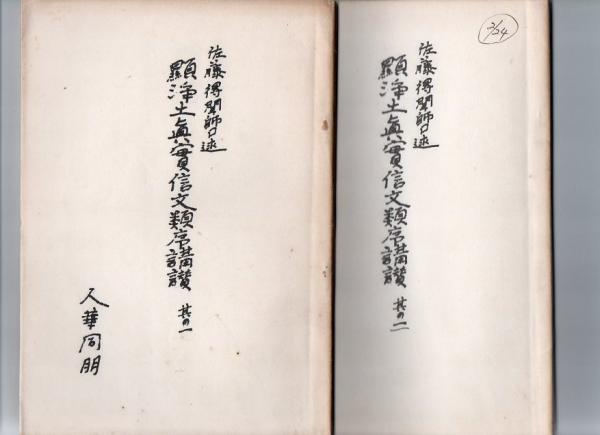 佐藤得聞師口述
顯淨土眞實信文類序講讃 其の一
人華同朋
2/24
佐藤得聞師口述
顯淨土眞實信文類序講讃 其の二